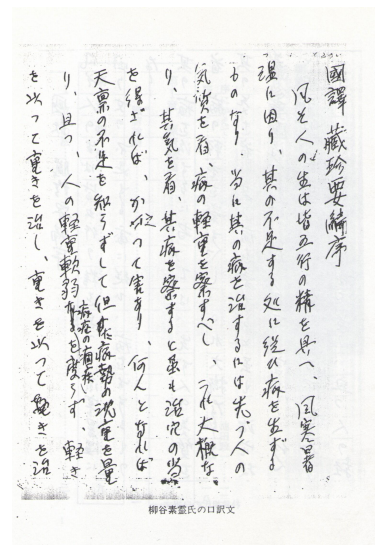 國譯 蔵珍要編序
夫れ人の生は皆五行の精を具へ、風寒暑
湿に因り、其の不足する処に従ひ病を生ずる
ものなり。当に其の病を治するには先づ人の
気質を看、病の軽重を察すべし これ大概な
り、其気を看、其病を察すると虽も治穴の当
を得ざれば、かへつて害あり、何んとなれば
天禀の不足を知らずして但だ病勢の沈重を量
り、且つ、人の軽重軟弱なるを度らず、軽き
を以つて重きを治し、重きを以つて軽きを治
柳谷素霊氏の口訳文